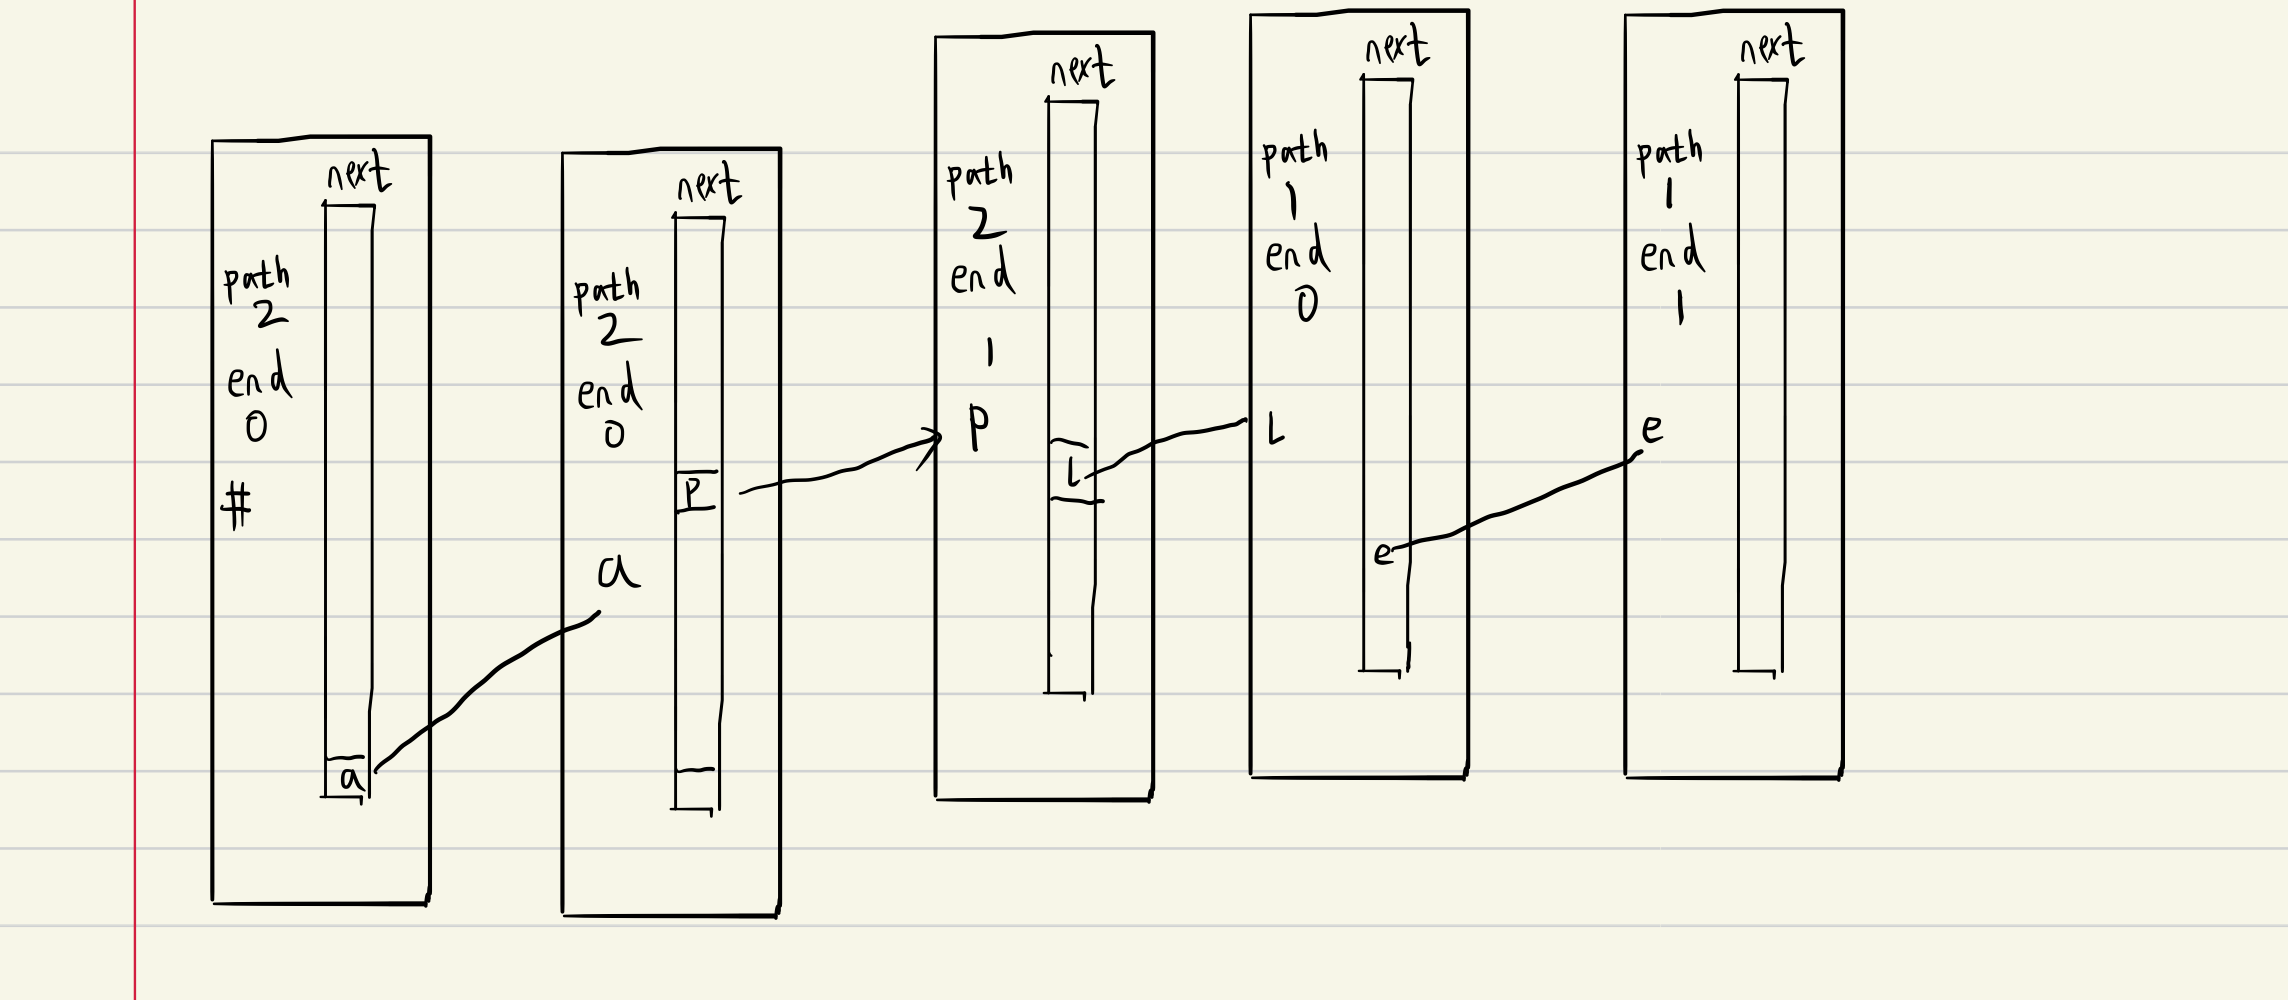 next
path
2
end
0
#
a
next
path
2
end
0
P
a
next
path
2
end
1
P
l
next
path
1
end
0
L
e
next
path
1
end
1
e